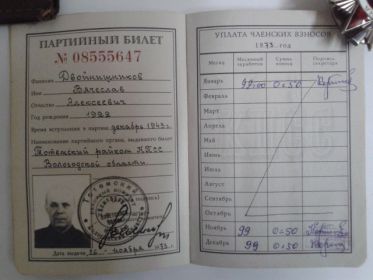 ПАРТИЙНЫЙ БИЛЕТ
№ 08555647
Фамилия Двойнишников
Имя Вячеслав
Отчество Алексеевич
Год рождения 1922
Время вступления в партию декабрь 1943 г.
Наименование партийного органа, выдавшего билет
Тотемский райком КПСС
Вологодской области
Дата выдачи 26 ноября 1973 г.
УПЛАТА ЧЛЕНСКИХ ВЗНОСОВ
1973 год
Месяц Месячный заработок Сумма взноса Подпись секретаря
Январь 99-00 0-50
Февраль
Март
Апрель
Май
Июнь
Июль
Август
Сентябрь
Октябрь
Ноябрь 99 0-50
Декабрь 99 0-50